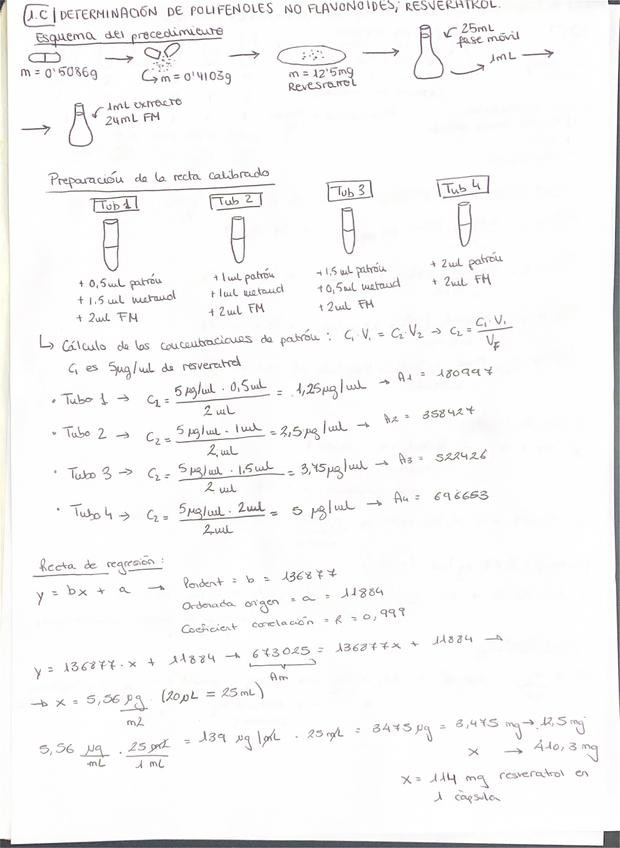 1.C | DETERMINACIÓN DE POLIFENOLES NO FLAVONOIDES; RESVERATROL.
Esquema del procedimiento
m = 0'5086g
m = 0'4103g
m = 12'5mg
Revesratrol
25mL
fase móvil
1mL
1mL extracto
24mL FM
Preparación de la recta calibrado
Tub 1
Tub 2
Tub 3
Tub 4
+ 0,5ml patrón
+ 1.5 ml metanol
+ 2ml FM
+ 1ml patrón
+ 1ml metanol
+ 2ml FM
+ 1,5 ml patrón
+ 0,5ml metanol
+ 2ml FM
+ 2ml patrón
+ 2ml FM
↳ Cálculo de las concentraciones de patrón : C₁·V₁ = C₂·V₂ → C₂ = C₁·V₁ / V_F
C₁ es 5µg/ml de resveratrol
• Tubo 1 → C₂ = 5 µg/ml · 0,5ml / 2 ml = 1,25µg/ml → A₁ = 180997
• Tubo 2 → C₂ = 5 µg/ml · 1ml / 2ml = 2,5µg/ml → A₂ = 358427
• Tubo 3 → C₂ = 5µg/ml · 1,5ml / 2ml = 3,75µg/ml → A₃ = 522426
• Tubo 4 → C₂ = 5µg/ml · 2ml / 2ml = 5 µg/ml → A₄ = 696653
Recta de regresión :
y = bx + a → Pendent = b = 136877
Ordenada origen = a = 11884
Coeficient corelación = R = 0,999
y = 136877·x + 11884 → 673025 = 136877x + 11884 →
Am
→ x = 5,56 µg / mL (20µL = 25mL)
5,56 µg / mL · 25mL / 1 mL = 139 µg/mL · 25mL = 3475µg = 3,475 mg → 12,5mg
x → 410,3 mg
x = 114 mg resveratrol en
1 càpsula